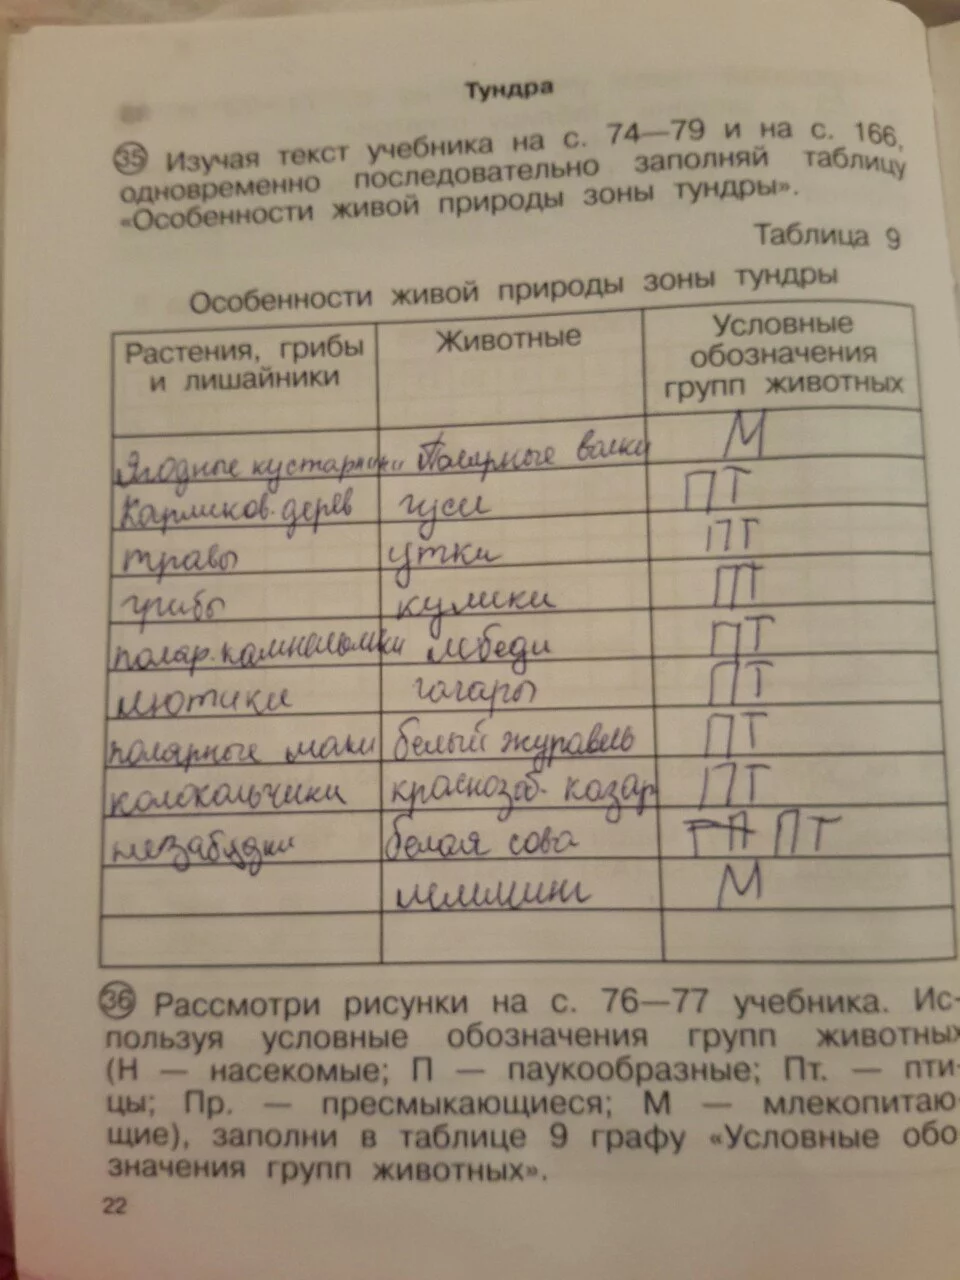 Тундра
35 Изучая текст учебника на с. 74—79 и на с. 166,
одновременно последовательно заполняй таблицу
«Особенности живой природы зоны тундры».
Таблица 9
Особенности живой природы зоны тундры
Растения, грибы и лишайники Животные Условные обозначения групп животных
Ягодные кустарники Полярные волки М
Карликов. дерев гуси ПТ
травы утки ПТ
грибы кулики ПТ
поляр. камнеломки лебеди ПТ
лютики гагары ПТ
полярные маки белый журавль ПТ
колокольчики краснозоб. казар ПТ
незабудки белая сова ПТ
лемминг М
36 Рассмотри рисунки на с. 76—77 учебника. Ис-
пользуя условные обозначения групп животных
(Н — насекомые; П — паукообразные; Пт. — пти-
цы; Пр. — пресмыкающиеся; М — млекопитаю-
щие), заполни в таблице 9 графу «Условные обо-
значения групп животных».
22